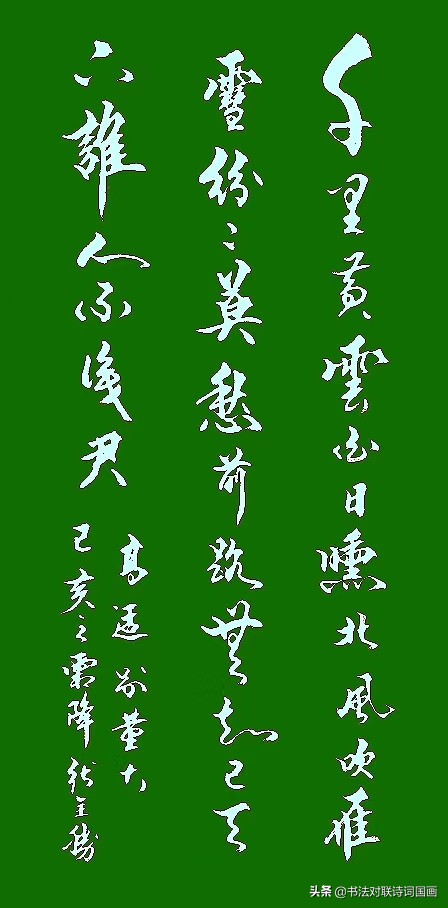 千里黄雲白日曛北風吹雁
雪紛々莫愁前路無知己天
下誰人不識君
高適別董大
己亥之霜降
头条 @书法对联诗词国画